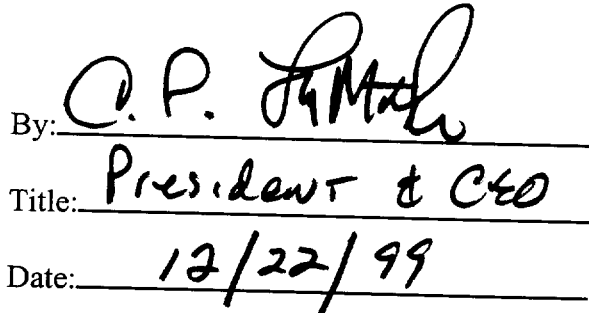 By: C. P.
Title: President & CEO
Date: 12/22/99